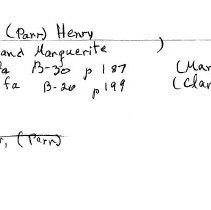 (Parr) Henry
and Marguerite )
fa B-30 p 187 (Mar
fa B-20 p 199 (Clar
r, (Parr)